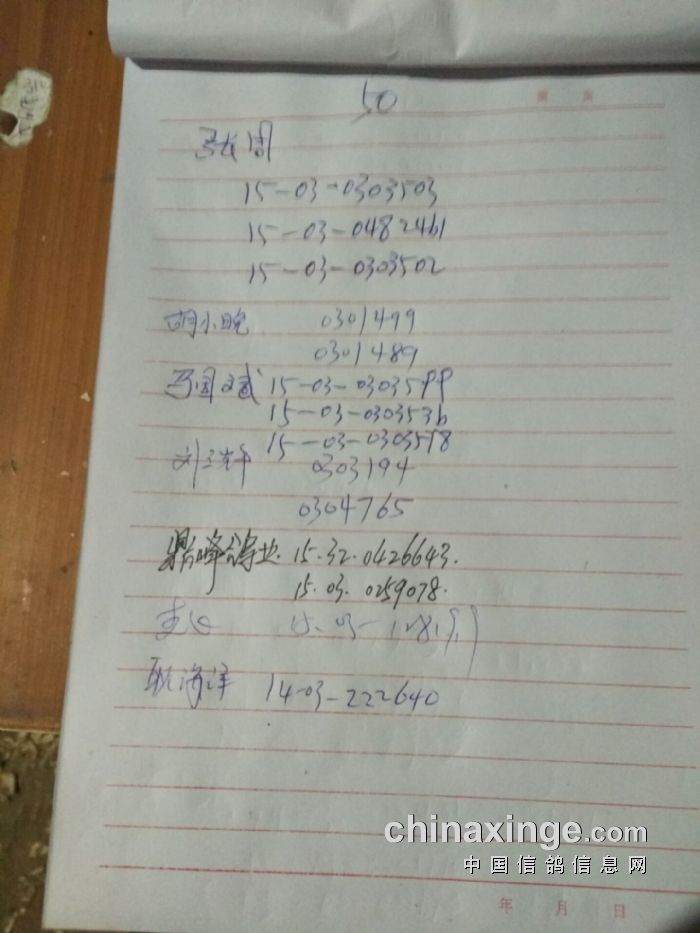 50
15-03-0303503
15-03-0482461
15-03-0303502
胡小晚 0301499
0301489
马国斌 15-03-0303599
15-03-0303536
15-03-0303578
0303194
0304765
鼎峰鸽业. 15.32.0426643.
15.03.0259078.
15-03-
耿海洋 14-03-222640
chinaxinge.com
中国信鸽信息网
年 月 日